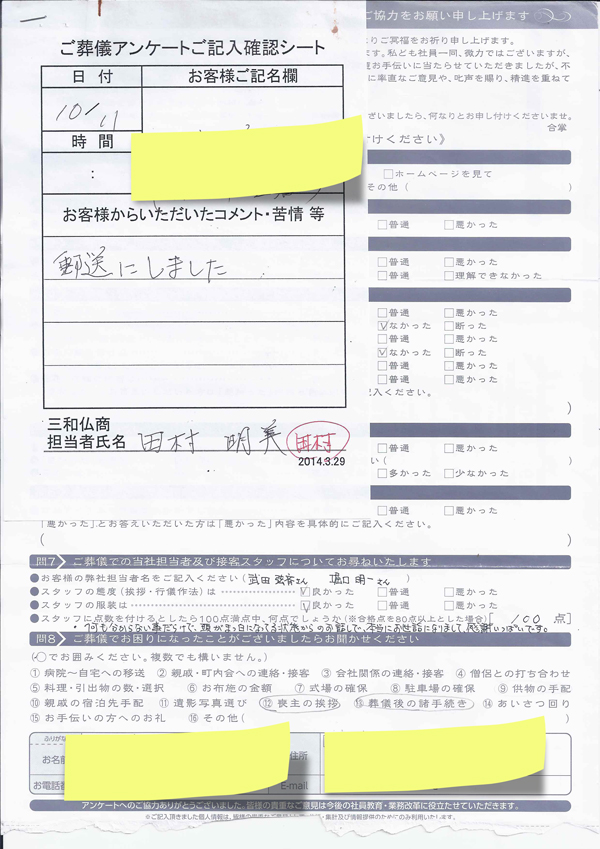 ご協力をお願い申し上げます
ご冥福をお祈り申し上げます。
ます。私ども社員一同、微力ではございますが、
お手伝いに当たらせていただきましたが、不
に率直なご意見や、叱声を賜り、精進を重ねて
ざいましたら、何なりとお申し付けくださいませ。
合掌
付けください》
ご葬儀アンケートご記入確認シート
日 付 お客様ご記名欄
10/11
時 間
:
お客様からいただいたコメント・苦情 等
郵送にしました
三和仏商
担当者氏名 田村 明美 田村
2014.3.29
□ホームページを見て
その他( )
□普通 □悪かった
□普通 □悪かった
□普通 □理解できなかった
□普通 □悪かった
☑なかった □断った
□普通 □悪かった
☑なかった □断った
□普通 □悪かった
□普通 □悪かった
記入ください。
)
□普通 □悪かった
い( )
□多かった □少なかった
□普通 □悪かった
「悪かった」とお答えいただいた方は「悪かった」内容を具体的にご記入ください。
( )
問7 ご葬儀での当社担当者及び接客スタッフについてお尋ねいたします
●お客様の弊社担当者名をご記入ください( 武田 さん 樋口 明一 さん )
●スタッフの態度(挨拶・行儀作法)は ☑良かった □普通 □悪かった
●スタッフの服装は ☑良かった □普通 □悪かった
●スタッフに点数を付けるとしたら100点満点中、何点でしょうか(※合格点を80点以上とした場合)[ 100 点]
・何も分からない事だらけで、頭が真っ白になってる状態からのお話しで、本当にお世話になりまして、感謝いっぱいです。
問8 ご葬儀でお困りになったことがございましたらお聞かせください
(○でお囲みください。複数でも構いません。)
①病院〜自宅への移送 ②親戚・町内会への連絡・接客 ③会社関係の連絡・接客 ④僧侶との打ち合わせ
⑤料理・引出物の数・選択 ⑥お布施の金額 ⑦式場の確保 ⑧駐車場の確保 ⑨供物の手配
⑩親戚の宿泊先手配 ⑪遺影写真選び ⑫喪主の挨拶 ⑬葬儀後の諸手続き ⑭あいさつ回り
⑮お手伝いの方へのお礼 ⑯その他( )
ふりがな
お名前 住所
お電話番 E-mail
アンケートへのご協力ありがとうございました。皆様の貴重なご意見は今後の社員教育・業務改革に役立たせていただきます。
※ご記入頂きました個人情報は、皆様の 集計及び情報提供のためにのみ利用いたします。